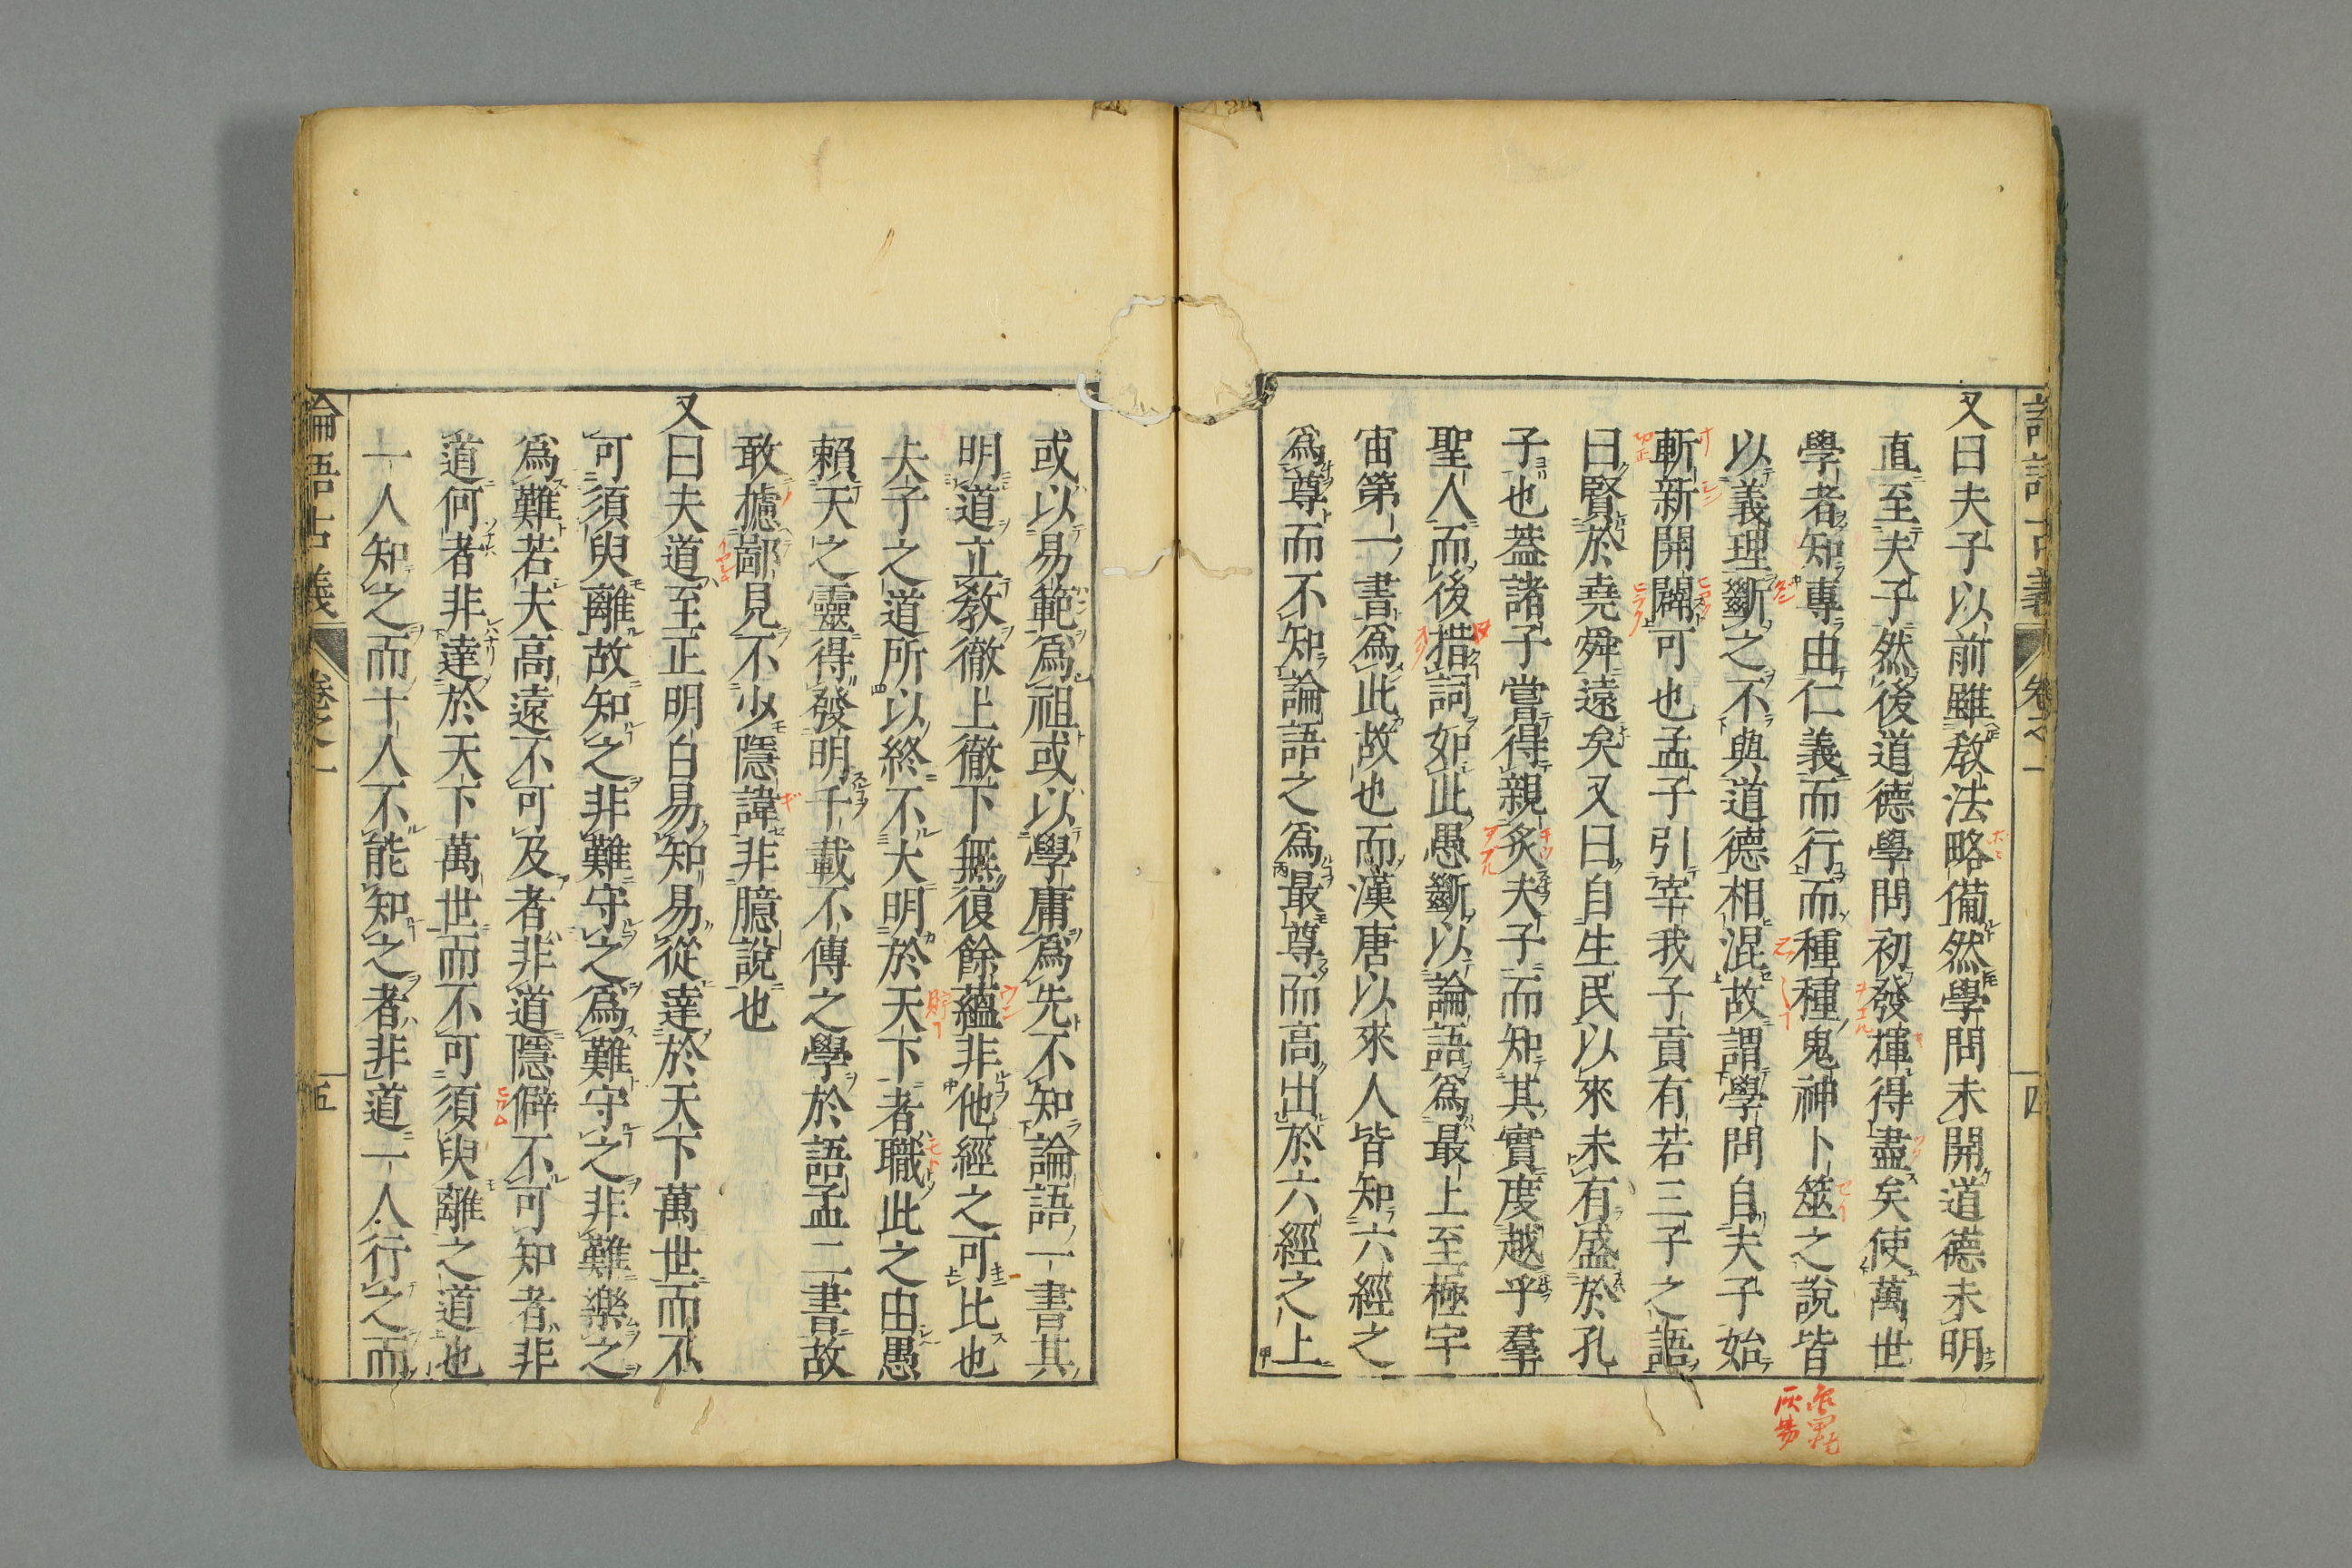 又曰夫子以前雖教法略備然學問未開道德未明
直至夫子然後道德學問初發揮得盡矣使萬世
學者知專由仁義而行而種種鬼神卜筮之說皆
以義理斷之不與道德相混故謂學問自夫子始
斬新開闢可也孟子引宰我子貢有若三子之語
曰賢於堯舜遠矣又曰自生民以來未有盛於孔
子也蓋諸子嘗得親炙夫子而知其實度越乎羣
聖人而後措詞如此愚斷以論語爲最上至極宇
宙第一書爲此故也而漢唐以來人皆知六經之
爲尊而不知論語之爲最尊而高出於六經之上
或以易範爲祖或以學庸爲先不知論語一書其
明道立教徹上徹下無復餘蘊非他經之可比也
夫子之道所以終不大明於天下者職此之由愚
賴天之靈得發明千載不傳之學於語孟二書故
敢攄鄙見不少隱諱非臆說也
又曰夫道至正明白易知易從達於天下萬世而不
可須臾離故知之非難守之爲難守之非難樂之
爲難若夫高遠不可及者非道隱僻不可知者非
道何者非達於天下萬世而不可須臾離之道也
一人知之而十人不能知之者非道一人行之而
論語古義
卷之一
五
卷之一
四